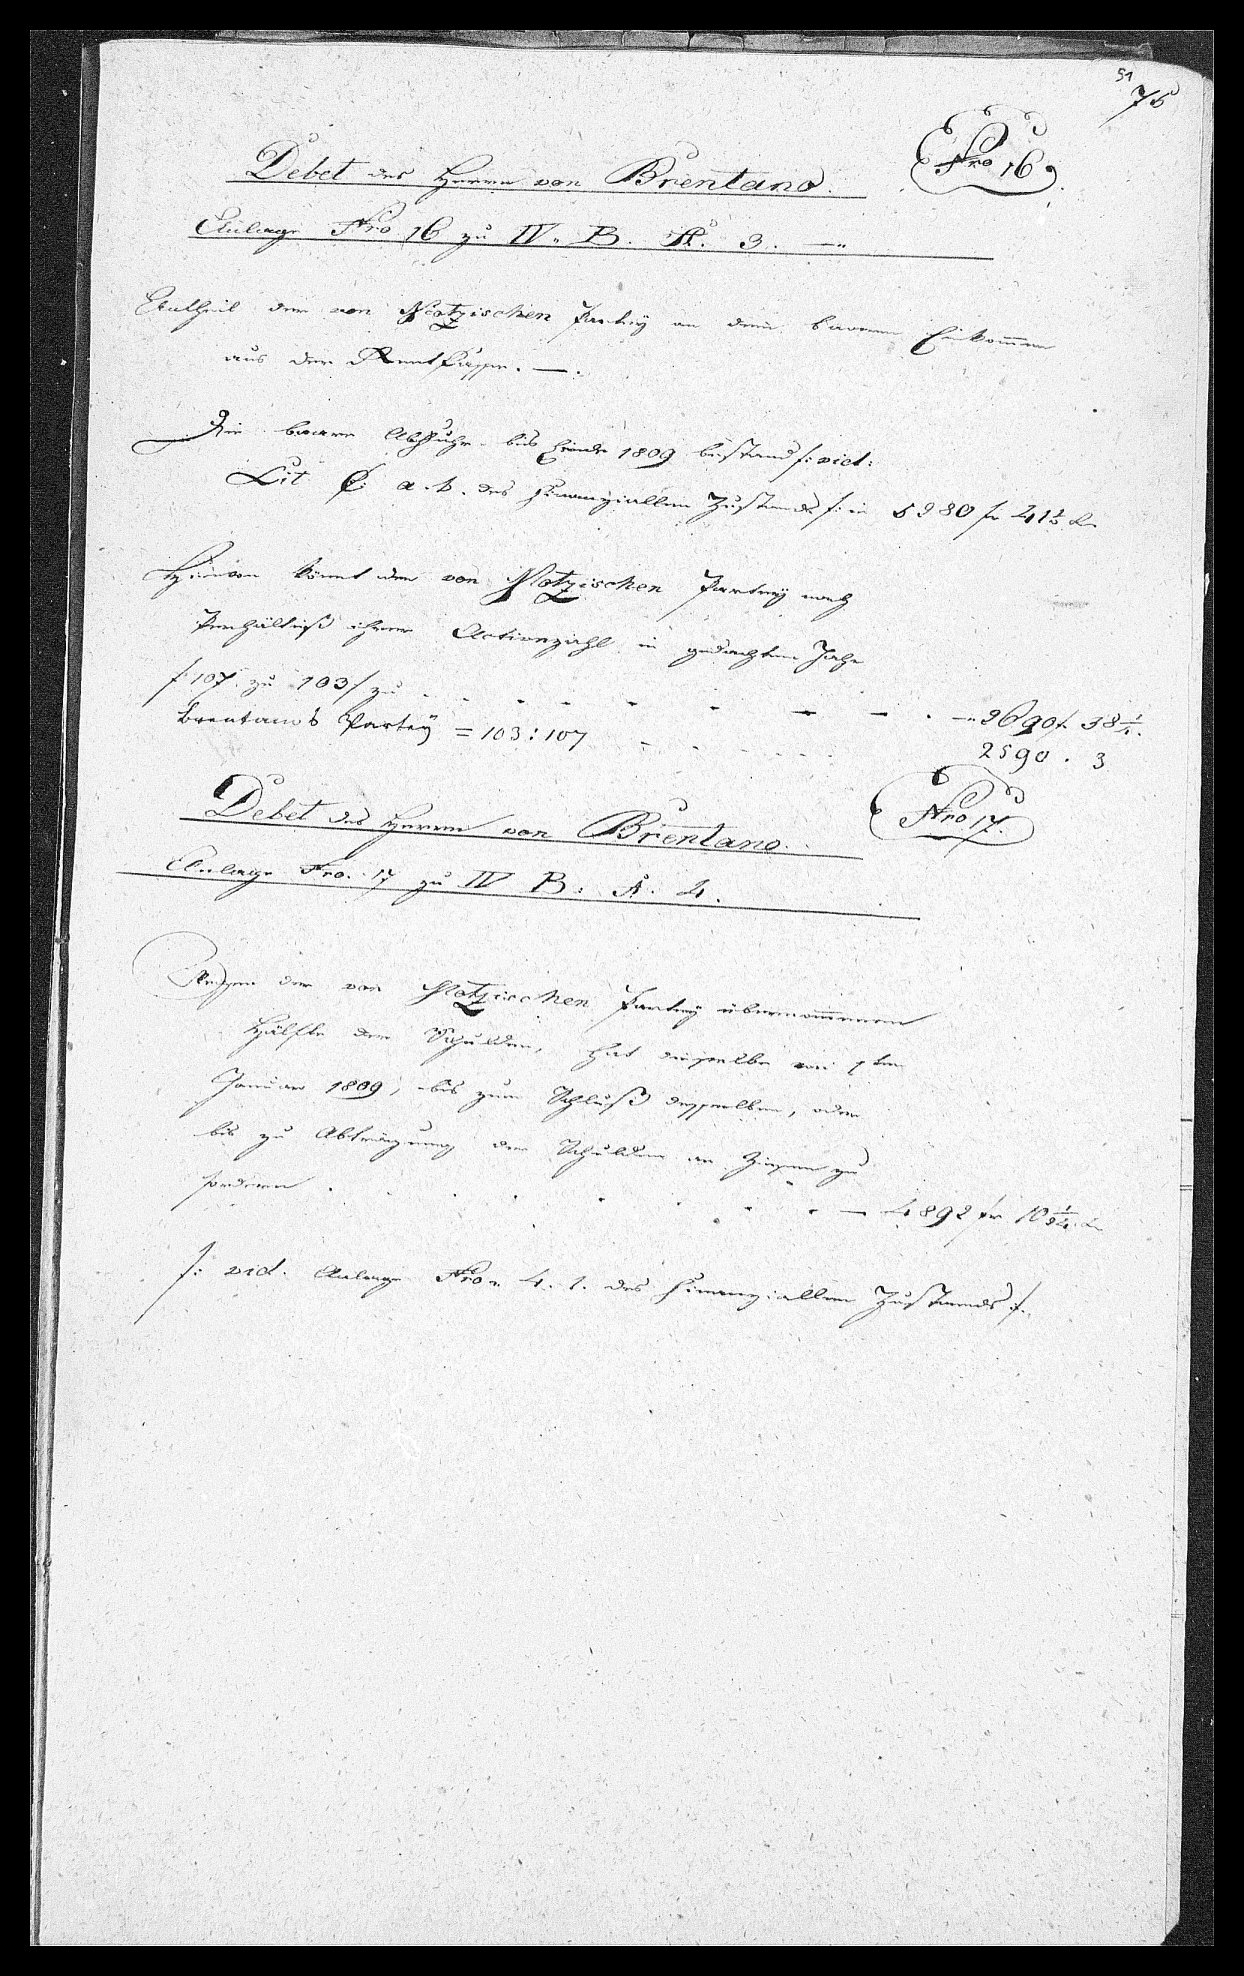 51
75
Nro 16.
Debet des Herrn von Brentano.
Anlage Nro 16 zu IV. B. A. 3. —
Antheil der von Motzischen Partey an dem baaren Einkommen
aus der Rentkasse. —.
Die baare Abfuhr bis Ende 1809 bestand /: vid:
Lit C. a. b. des finanziellen Zustands :/ in 5280 fr 41½ Kr
Hievon kömt der von Motzischen Partey nach
Verhältniß ihrer Actienzahl in gedachtem Jahr
/ 107 zu 103 / zu . . . . . . — 2690 fr. 38¼.
Brentano's Partey = 103:107 . . . . . 2590 . 3
Nro 17.
Debet des Herrn von Brentano.
Anlage Nro. 17 zu IV B. A. 4.
Wegen der von Motzischen Partey übernommenen
Hälfte der Schulden, hat dieselbe von 1ten
Januar 1809, bis zum Schluß desselben, oder
bis zu Abtragung der Schulden an Zinsen zu
fordern . . . . . . . — 4892 fr 10 1/24 Kr
/: vid. Anlage Nro. 4. 1. des finanziellen Zustands :/.